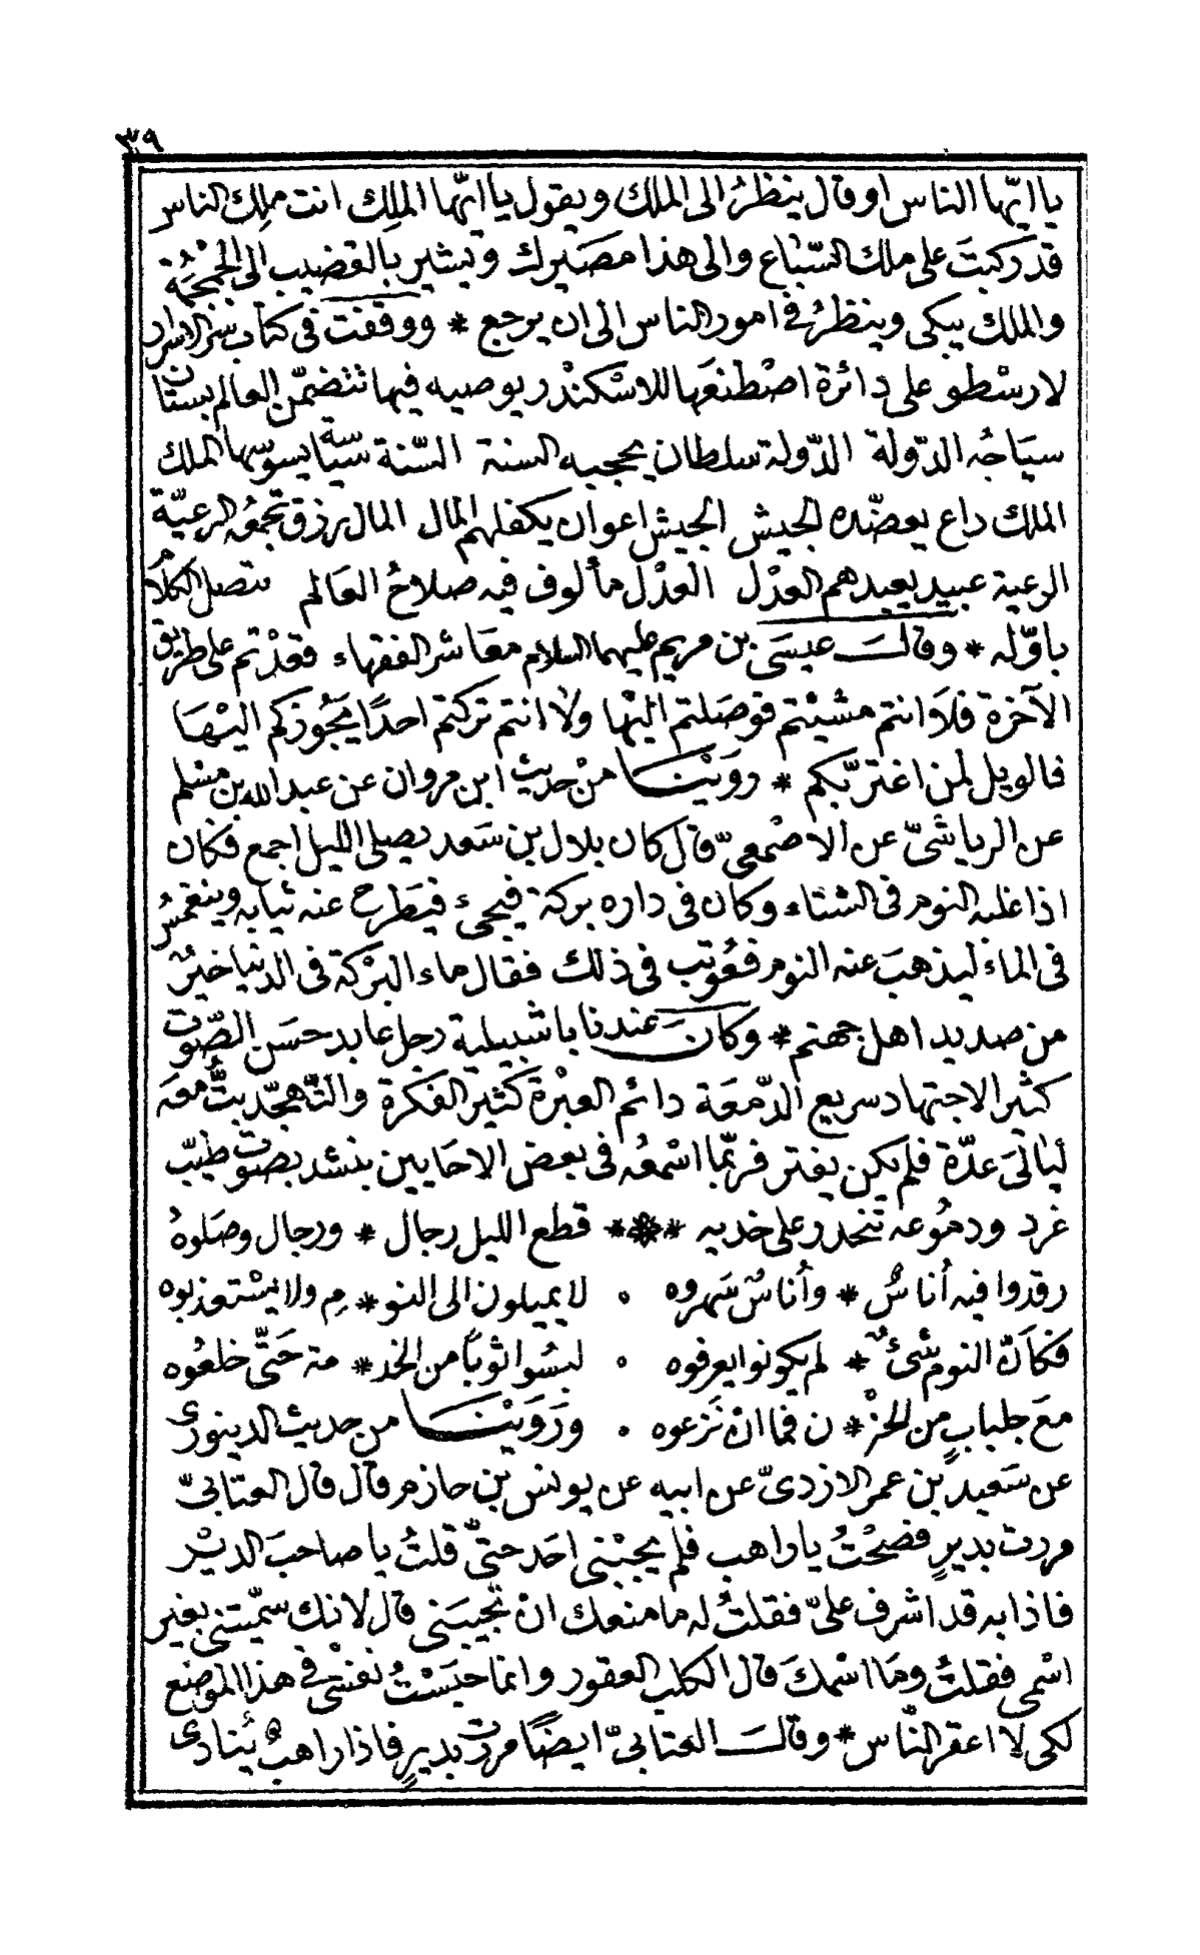 ٣٩
يا ايّها الناس او قال ينظرُ الى الملك ويقول يا ايّها الملِك انت ملِك الناس
قد ركبتَ على ملك السّباع والى هذا مصَيرك ويشير بالقضيب الى الجُمْجُمَة
والملك يبكى وينظرُ فى امور الناس الى ان يرجع * ووقفت فى كتاب سر الاسرار
لارسْطو على دائرة اصْطنعَها للاسْكندر يوصيه فيها تتضمّن العالم بستان
سيَاجُه الدّولة الدّولة سلطان يحجبه السنة السّنة سياسة يسوسها الملك
الملك داع يعضّده الجيش الجيش اعوان يكفلهم المال المال رزق تجمعُه الرعيّة
الرعية عبيد يعبدهم العدْل العدْل مألوف فيه صلاحُ العَالم يتصل الكلام
باوّله * وقالَ عيسَى بن مريم عليهما السلام معَاشر الفقهاء قعدْتم على طريق
الآخرة فلا انتم مشيْتم فوصَلتم اليْها ولا انتم تركتم احدًا يجُوزكم اليْهَا
فالويل لمن اغترّ بكم * روَيْنَا منْ حديث ابن مروان عن عبد الله بن مسْلم
عن الرياشىّ عن الاصْمعىّ قال كان بلال بن سَعد يصلى الليل اجمع فكان
اذا غلبه النوم فى الشتاء وكان فى داره بركة فيجىء فيَطرح عنه ثيابه وينغمسُ
فى الماء ليذهبَ عنه النوم فعُوتب فى ذلك فقال ماء البرْكة فى الدنيا خيرٌ
من صديد اهل جهنم * وكانَ عندنا باشبيلية رجل عابد حسَن الصّوت
كثير الاجتهاد سريع الدّمعَة دائم العبْرة كثير الفكرة والتّهجّد بتُّ معَه
ليَالىَ عدّة فلم يكن يفتر فربّما اسْمعُه فى بعض الاحَايين ينشد بصَوت طيّب
غرد ودمُوعه تنحدر على خديه *** قطع الليل رجال * ورجال وصَلوهُ
رقدوا فيه أناسٌ * وأناسٌ سَهروه ٠ لا يميلون الى النو * مِ ولا يسْتعذبوه
فكأنّ النوم شىءٌ * لم يكونوا يعرفوه ٠ لبسُوا ثوبًا من الخد * مة حَتّى خلعُوه
معَ جلبابٍ من الحزْ * ن فما انْ نَزعوه ٠ ورَوَيْنَا من حديث الدينورى
عن سَعيد بن عمر الازدىّ عن ابيه عن يونس بن حازم قال قال العتابىّ
مررت بديرٍ فصحْتُ يا راهب فلم يجبْنى احَد حتىّ قلتُ يا صاحبَ الديْر
فاذا به قد اشرف علىّ فقلتُ له ما منعك انْ تجيبَنى قال لانك سمّيتنى بغير
اسْمى فقلتُ ومَا اسْمكَ قال الكلب العقور وانما حبَسْتُ نفسْى فى هذا الموضع
لكى لا اعقر النّاس * وقالَ العتابىّ ايضًا مررت بديرٍ فاذا راهبٌ يُنادى